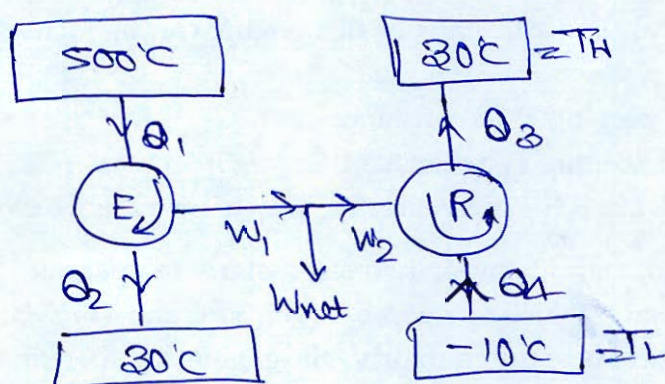 500°C
30°C = TH
Q1
Q3
E
R
W1
W2
Wnet
Q2
Q4
30°C
-10°C = TL